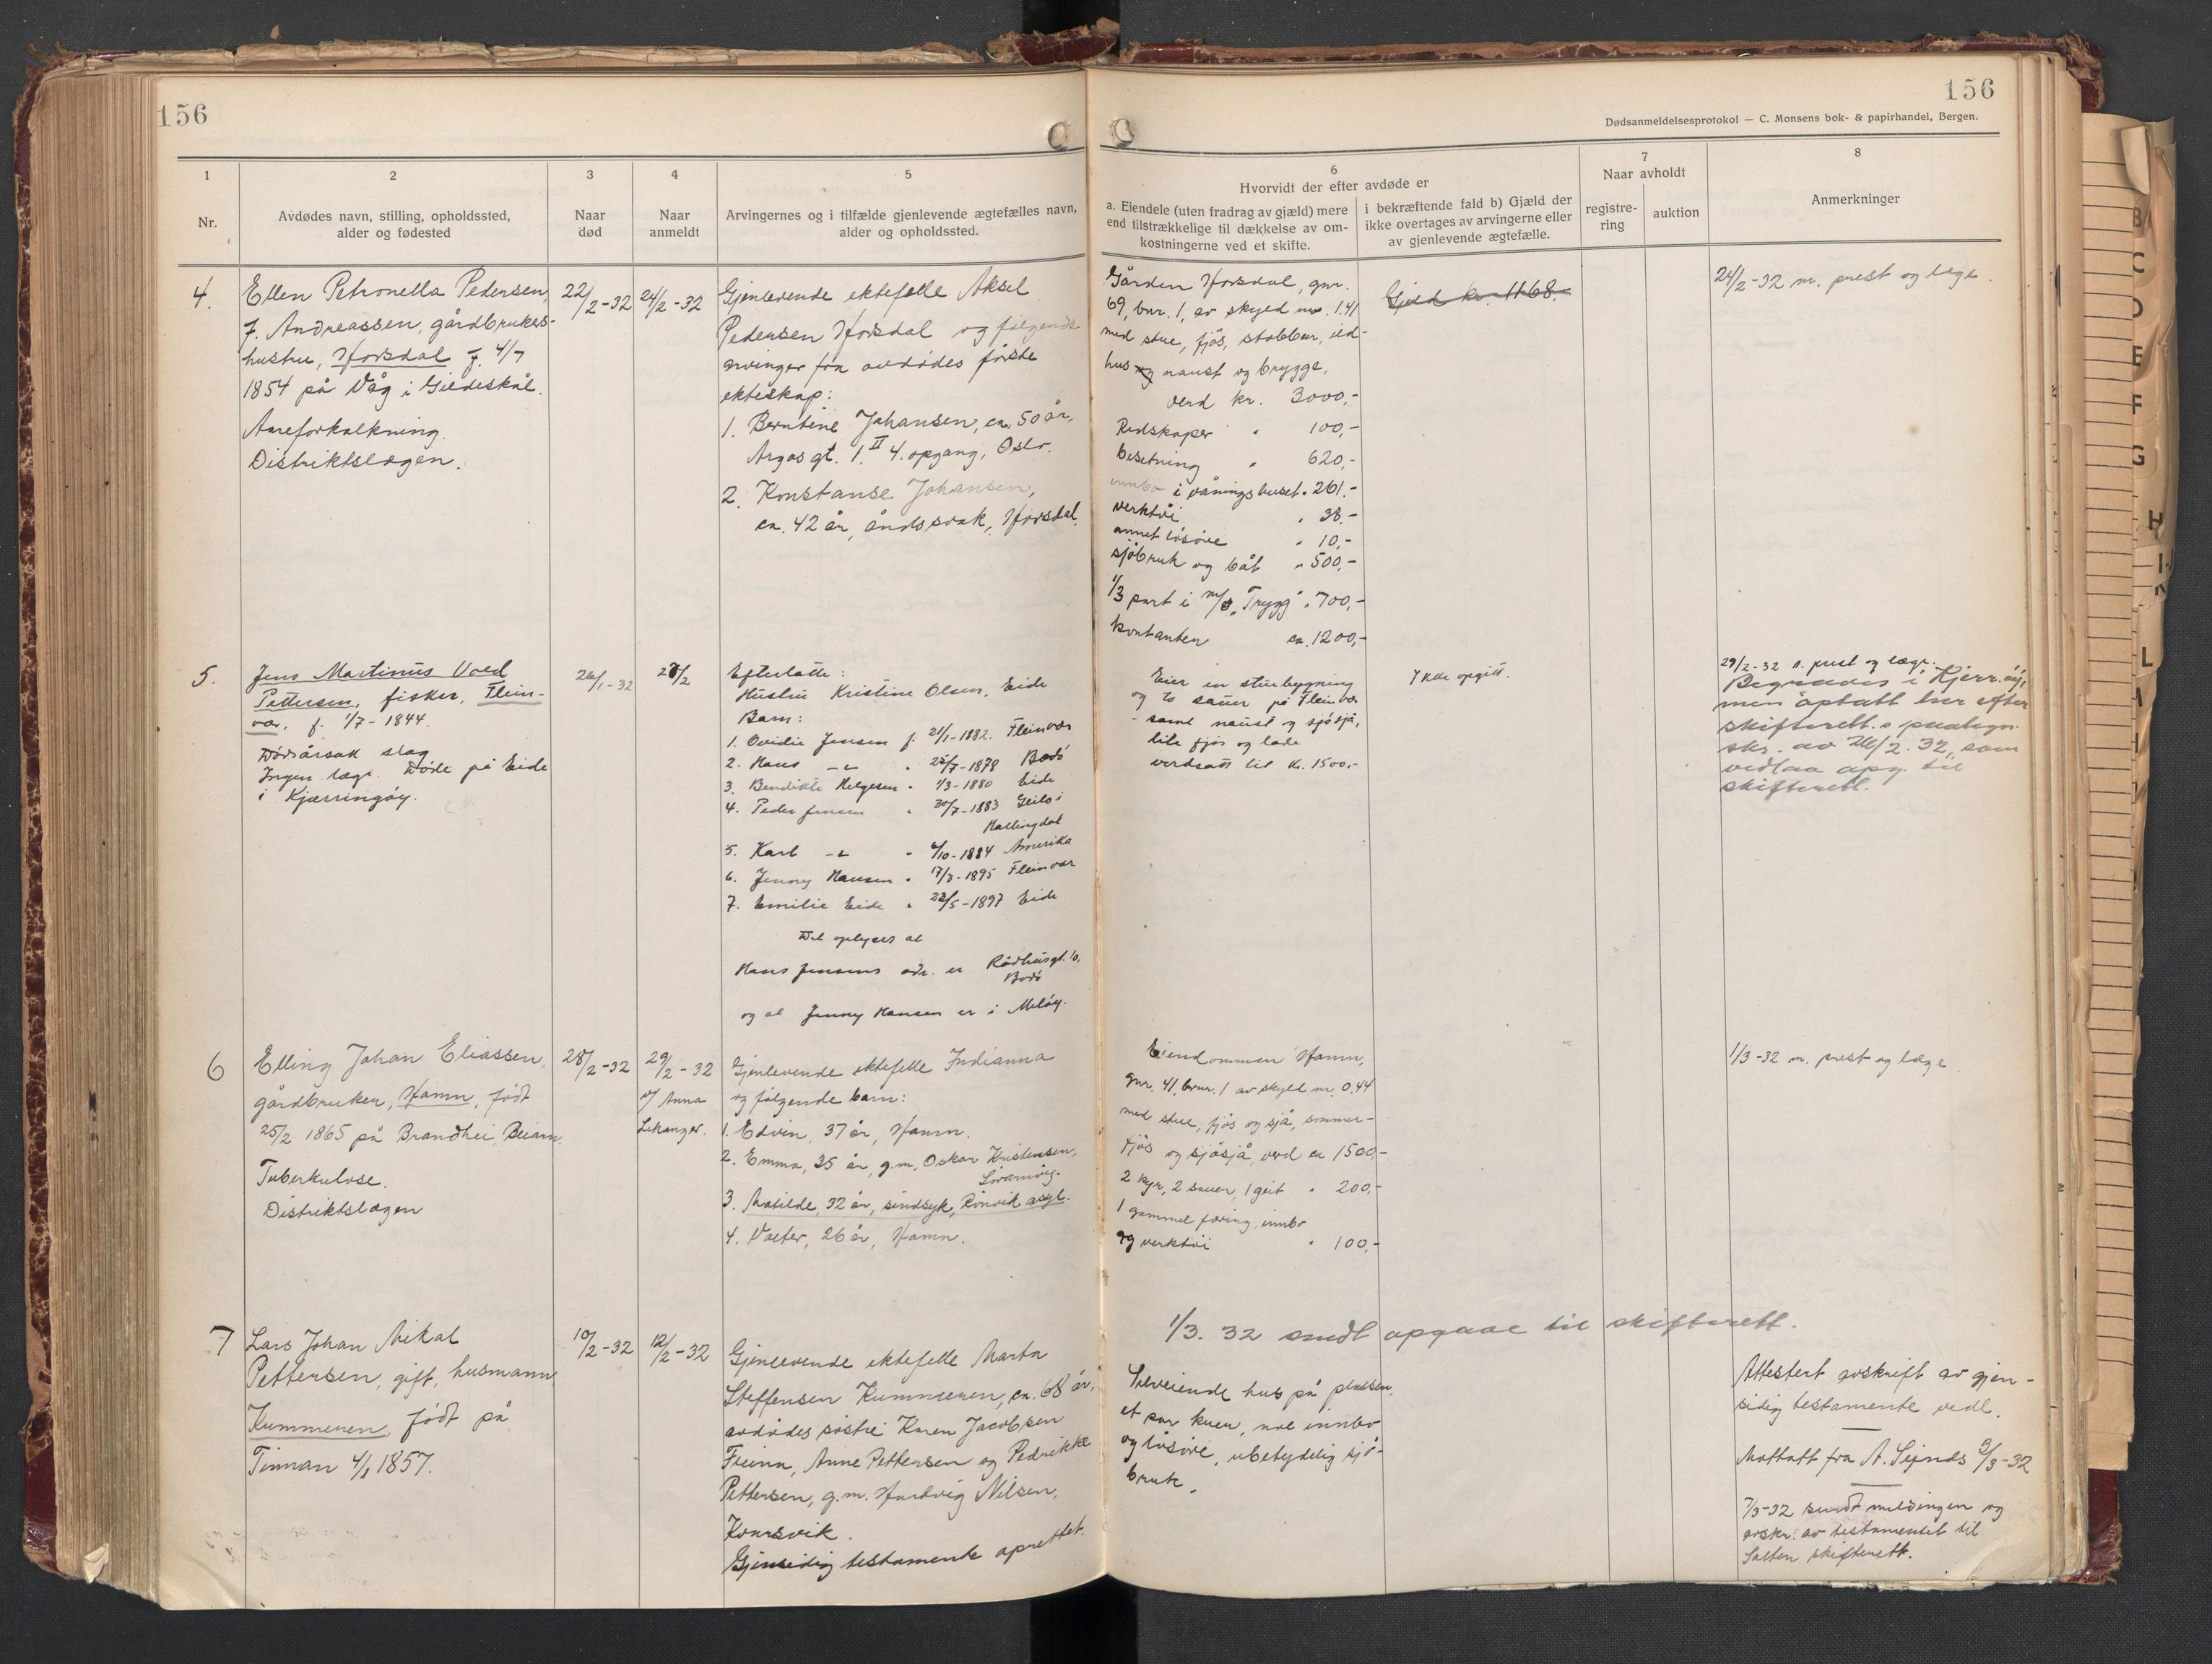 156
156
Dødsanmeldelsesprotokol — C. Monsens bok- & papirhandel, Bergen.
1
Nr.
2
Avdødes navn, stilling, opholdssted,
alder og fødested
3
Naar
død
4
Naar
anmeldt
5
Arvingernes og i tilfælde gjenlevende ægtefælles navn,
alder og opholdssted.
6
Hvorvidt der efter avdøde er
a. Eiendele (uten fradrag av gjæld) mere
end tilstrækkelige til dækkelse av om-
kostningerne ved et skifte.
i bekræftende fald b) Gjæld der
ikke overtages av arvingerne eller
av gjenlevende ægtefælle.
7
Naar avholdt
registre-
ring
auktion
8
Anmerkninger
4.
Ellen Petronella Pedersen,
f. Andreassen, gårdbrukers-
hustru, Horsdal f. 4/7
1854 på Våg i Gildeskål.
Åreforkalkning.
Distriktslægen.
22/2-32
24/2-32
Gjenlevende ektefelle Aksel
Pedersen Horsdal og følgende
arvinger fra avdødes første
ekteskap:
1. Berntine Johansen, ca. 50 år,
Argosgt. 1. II 4. opgang, Oslo.
2. Konstanse Johansen,
ca. 42 år, åndssvak, Horsdal.
Gården Horsdal, gnr.
69, bnr. 1, av skyld m. 1.41
med stue, fjøs, stabbur, ild-
hus og naust og brygge,
verd kr. 3000,-
Redskaper " 100,-
besetning " 620,-
innbo i våningshuset " 261.-
verktøi " 38.-
annet løsøre " 10,-
sjøbruk og båt " 500,-
1/3 part i m/ "Trygg" " 700,-
kontanter ca. 1200,-
Gjeld kr. 1168.-
24/2-32 m. prest og læge.
5.
Jens Martinus Voed
Pettersen, fisker, Flein-
vær, f. 1/7-1844.
Dødsårsak slag
Ingen læge. Døde på Eide
i Kjærringøy.
26/1-32
27/2
Efterlatte:
Hustru Kristine Olsen, Eide
Barn:
1. Ovidie Jensen f. 21/1-1882. Fleinvær
2. Hans -"- " 23/7-1878 Bodø
3. Bendikte Helgesen " 1/3-1880 Eide
4. Peder Jensen " 30/7-1883 Geilo i
Hallingdal
5. Karl -"- " 6/10-1884 Amerika
6. Jenny Hansen " 17/3-1895 Fleinvær
7. Emilie Eide " 23/5-1897 Eide
Det oplyses at
Hans Jensens adr. er Rådhusgt. 10,
Bodø
og at Jenny Hansen er i Meløy.
Eier en stuebygning
og to sauer på Fleinvær
- samt naust og sjøsjå,
lite fjøs og lade
verdsatt til kr. 1500,-
Ikke opgitt.
29/2-32 m. prest og læge.
Begravdes i Kjerr.øy,
men optatt her efter
skifterett.s paategn.
skr. av 26/2.32, som
vedlaa opg. til
skifterett.
6
Elling Johan Eliassen,
gårdbruker, Hamn, født
25/2 1865 på Brandhei, Beiarn
Tuberkulose.
Distriktslægen
28/2-32
29/2-32
v/ Anna
Lekanger.
Gjenlevende ektefelle Indianna
og følgende barn:
1. Edvin, 37 år, Hamn.
2. Emma, 35 år, g.m. Oskar Kristensen,
Sørarnøy.
3. Matilde, 32 år, sindsyk, Rønvik asyl.
4. Valter, 26 år, Hamn.
Eiendommen Hamn,
gnr. 41, bnr. 1 av skyld m. 0.44
med stue, fjøs og sjå, sommer-
fjøs og sjøsjå, verd ca 1500,-
2 kyr, 2 sauer, 1 geit " 200,-
1 gammel færing, innbo
og verktøi " 100,-
1/3-32 m. prest og læge
1/3. 32 sendt opgaae til skifterett.
7
Lars Johan Mikal
Pettersen, gift, husmann
Kummeren, født på
Finnan 4/1 1857.
10/2-32
12/2-32
Gjenlevende ektefelle Marta
Steffensen Kummeren, ca. 68 år,
avdødes søstre Karen Jacobsen
Freina, Anne Pettersen og Pedrikke
Pettersen, g.m. Hartvig Nilsen,
Kvarsvik.
Gjensidig testamente oprettet.
Selveiende hus på plassen,
et par kuer, noe innbo
og løsøre, ubetydelig sjø-
bruk.
Attestert avskrift av gjen-
sidig testamente vedl.
Mottatt fra A. Sejnæs 3/3-32
7/3-32 sendt meldingen og
avskr. av testamentet til
Salten skifterett.
B
C
D
E
F
G
H
L